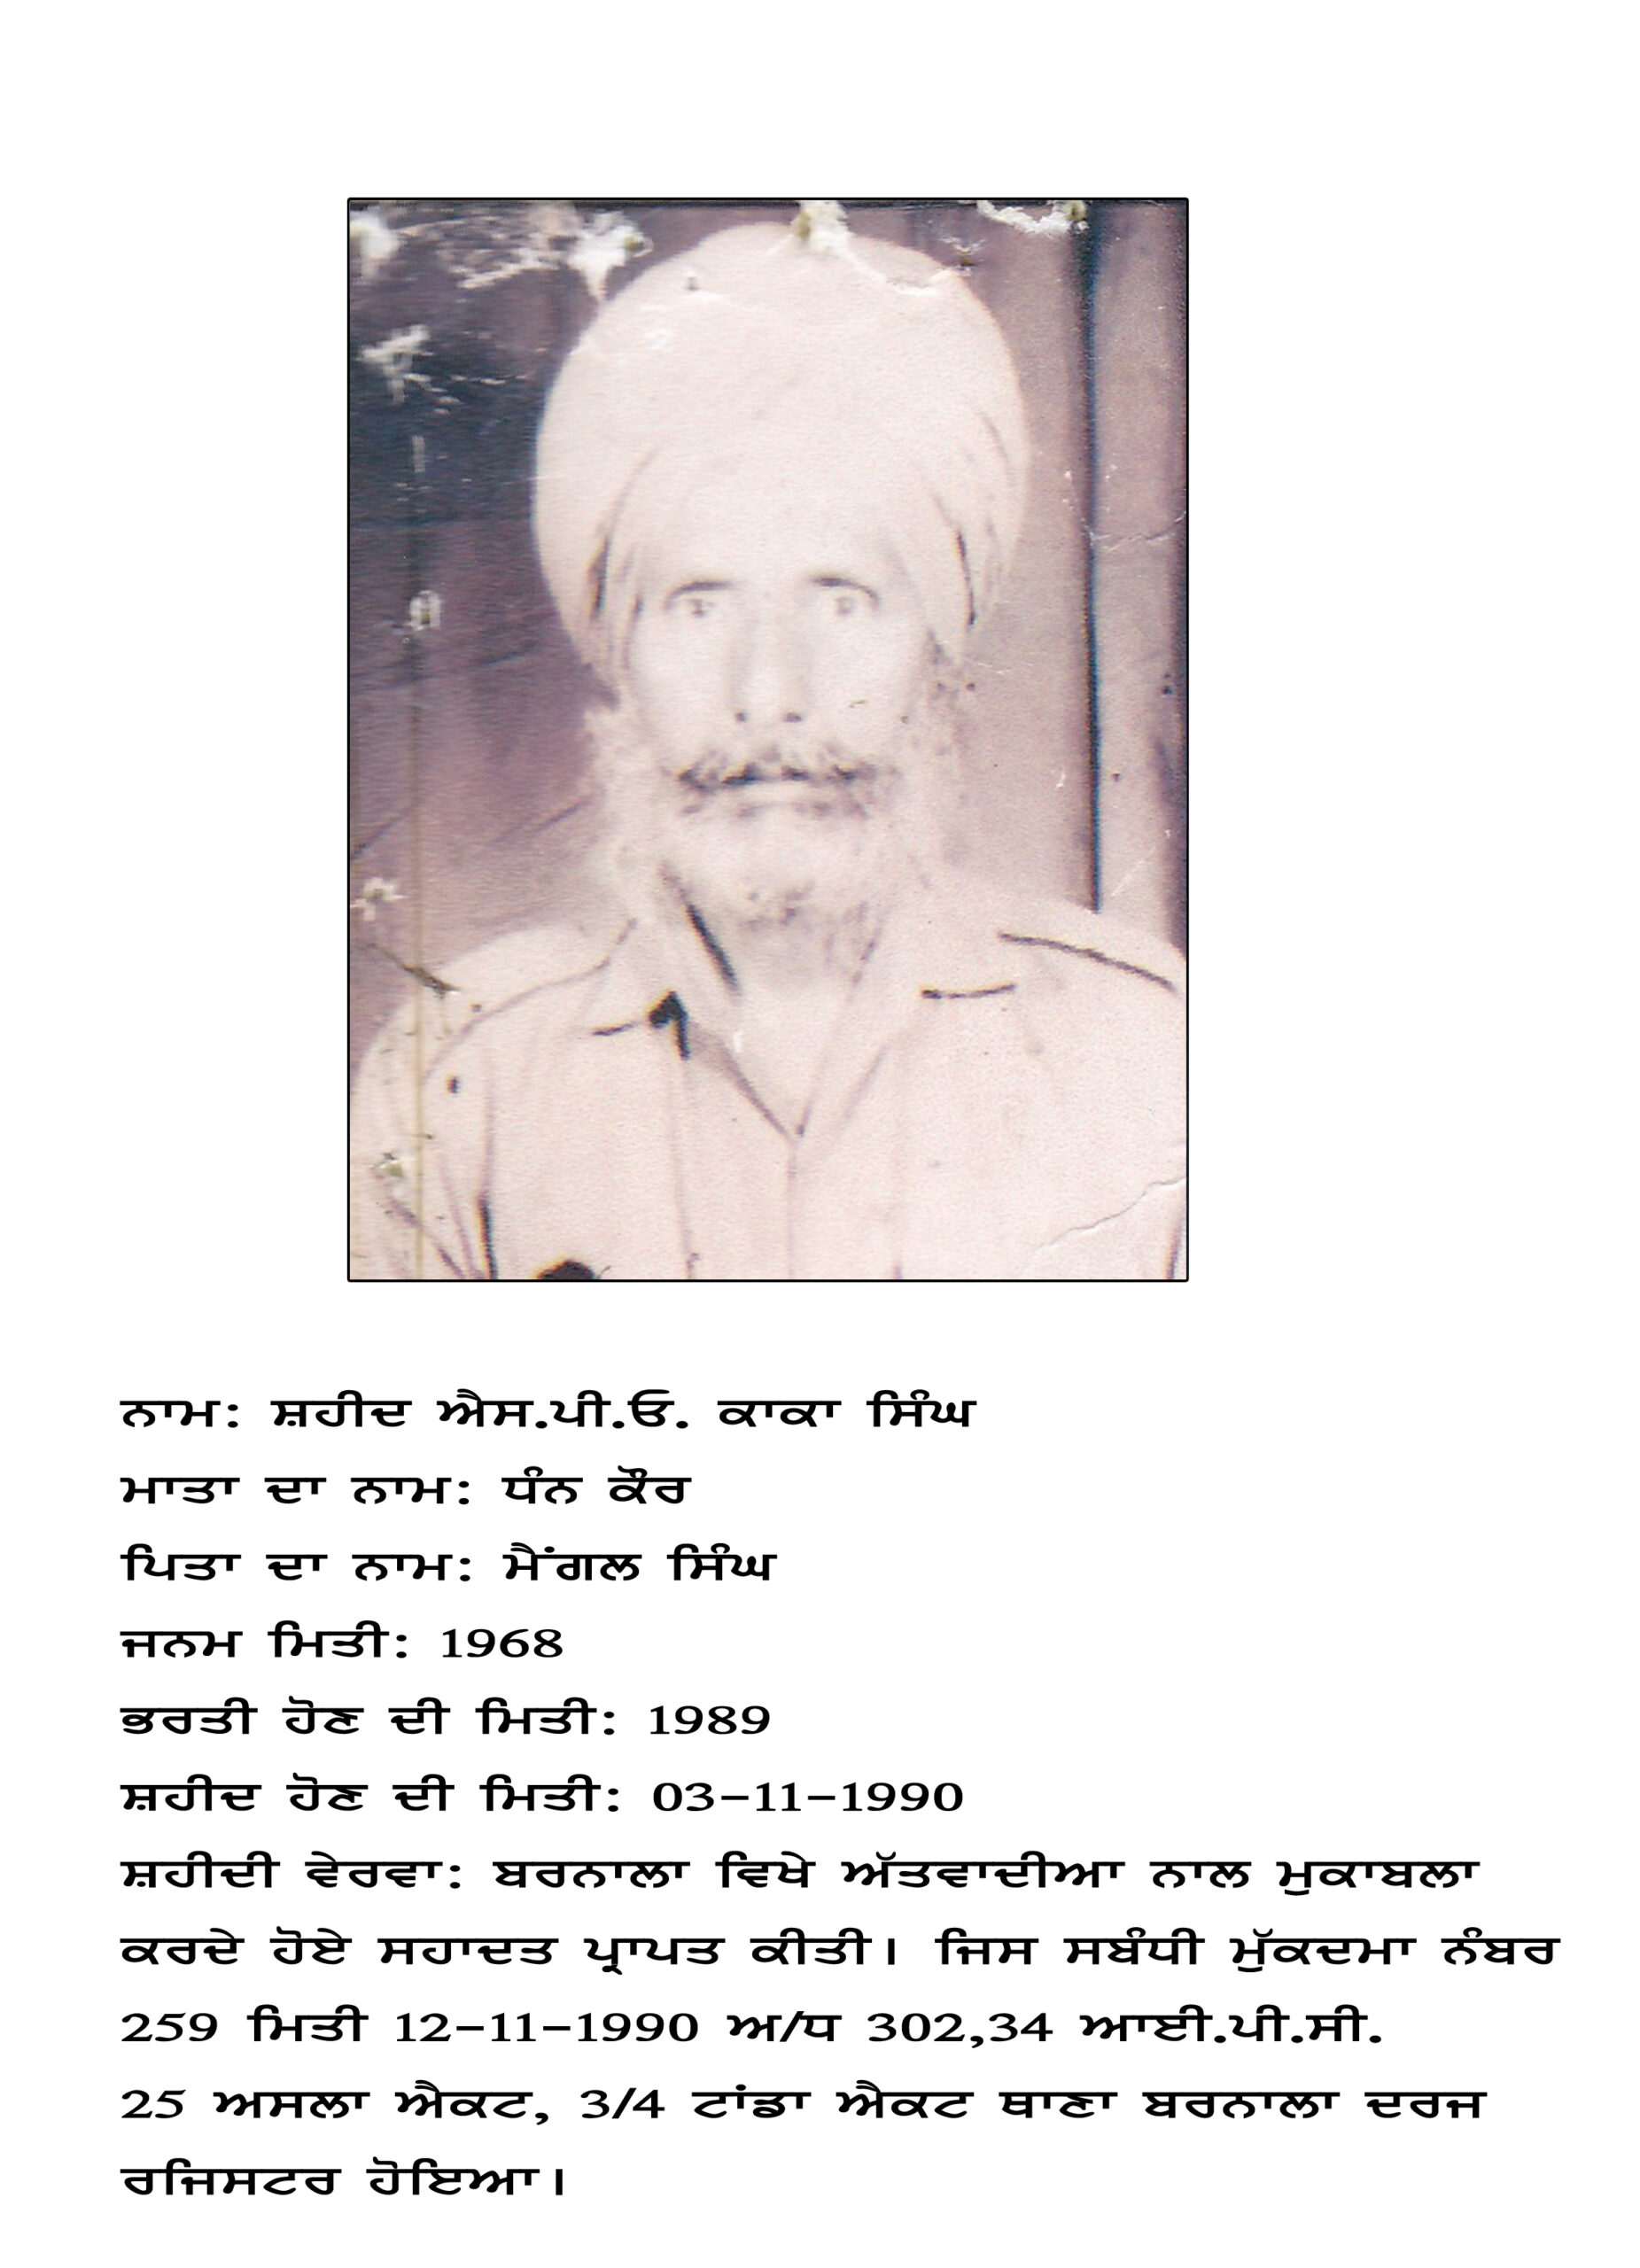 ਨਾਮ: ਸ਼ਹੀਦ ਐਸ.ਪੀ.ਓ. ਕਾਕਾ ਸਿੰਘ
ਮਾਤਾ ਦਾ ਨਾਮ: ਧੰਨ ਕੌਰ
ਪਿਤਾ ਦਾ ਨਾਮ: ਮੈਂਗਲ ਸਿੰਘ
ਜਨਮ ਮਿਤੀ: 1968
ਭਰਤੀ ਹੋਣ ਦੀ ਮਿਤੀ: 1989
ਸ਼ਹੀਦ ਹੋਣ ਦੀ ਮਿਤੀ: 03-11-1990
ਸ਼ਹੀਦੀ ਵੇਰਵਾ: ਬਰਨਾਲਾ ਵਿਖੇ ਅੱਤਵਾਦੀਆ ਨਾਲ ਮੁਕਾਬਲਾ
ਕਰਦੇ ਹੋਏ ਸਹਾਦਤ ਪ੍ਰਾਪਤ ਕੀਤੀ। ਜਿਸ ਸਬੰਧੀ ਮੁੱਕਦਮਾ ਨੰਬਰ
259 ਮਿਤੀ 12-11-1990 ਅ/ਧ 302,34 ਆਈ.ਪੀ.ਸੀ.
25 ਅਸਲਾ ਐਕਟ, 3/4 ਟਾਂਡਾ ਐਕਟ ਥਾਣਾ ਬਰਨਾਲਾ ਦਰਜ
ਰਜਿਸਟਰ ਹੋਇਆ।